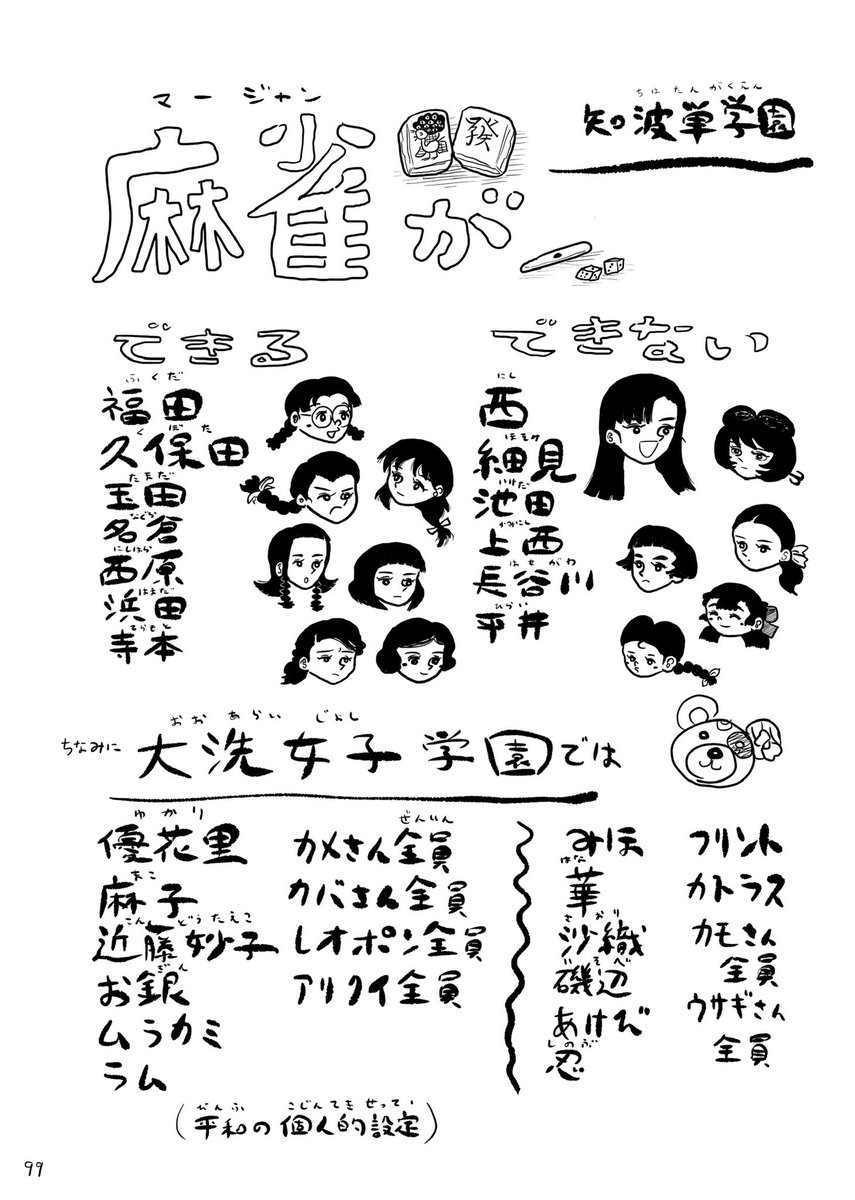 知波単学園
ちはたんがくえん
マージャン
麻雀が
發
できる
福田
ふくだ
久保田
くぼた
玉田
たまだ
名倉
なぐら
西原
にしはら
浜田
はまだ
寺本
てらもと
できない
西
にし
細見
ほそみ
池田
いけだ
上西
かみにし
長谷川
はせがわ
平井
ひらい
ちなみに 大洗女子学園では
おおあらい じょし
優花里
ゆかり
麻子
まこ
近藤妙子
こんどうたえこ
お銀
ぎん
ムラカミ
ラム
カメさん全員
ぜんいん
カバさん全員
レオポン全員
アリクイ全員
みほ
華
はな
沙織
さおり
磯辺
いそべ
あけび
忍
しのぶ
フリント
カトラス
カモさん
全員
ウサギさん
全員
(平和の個人的設定)
こじんてきせってい
99